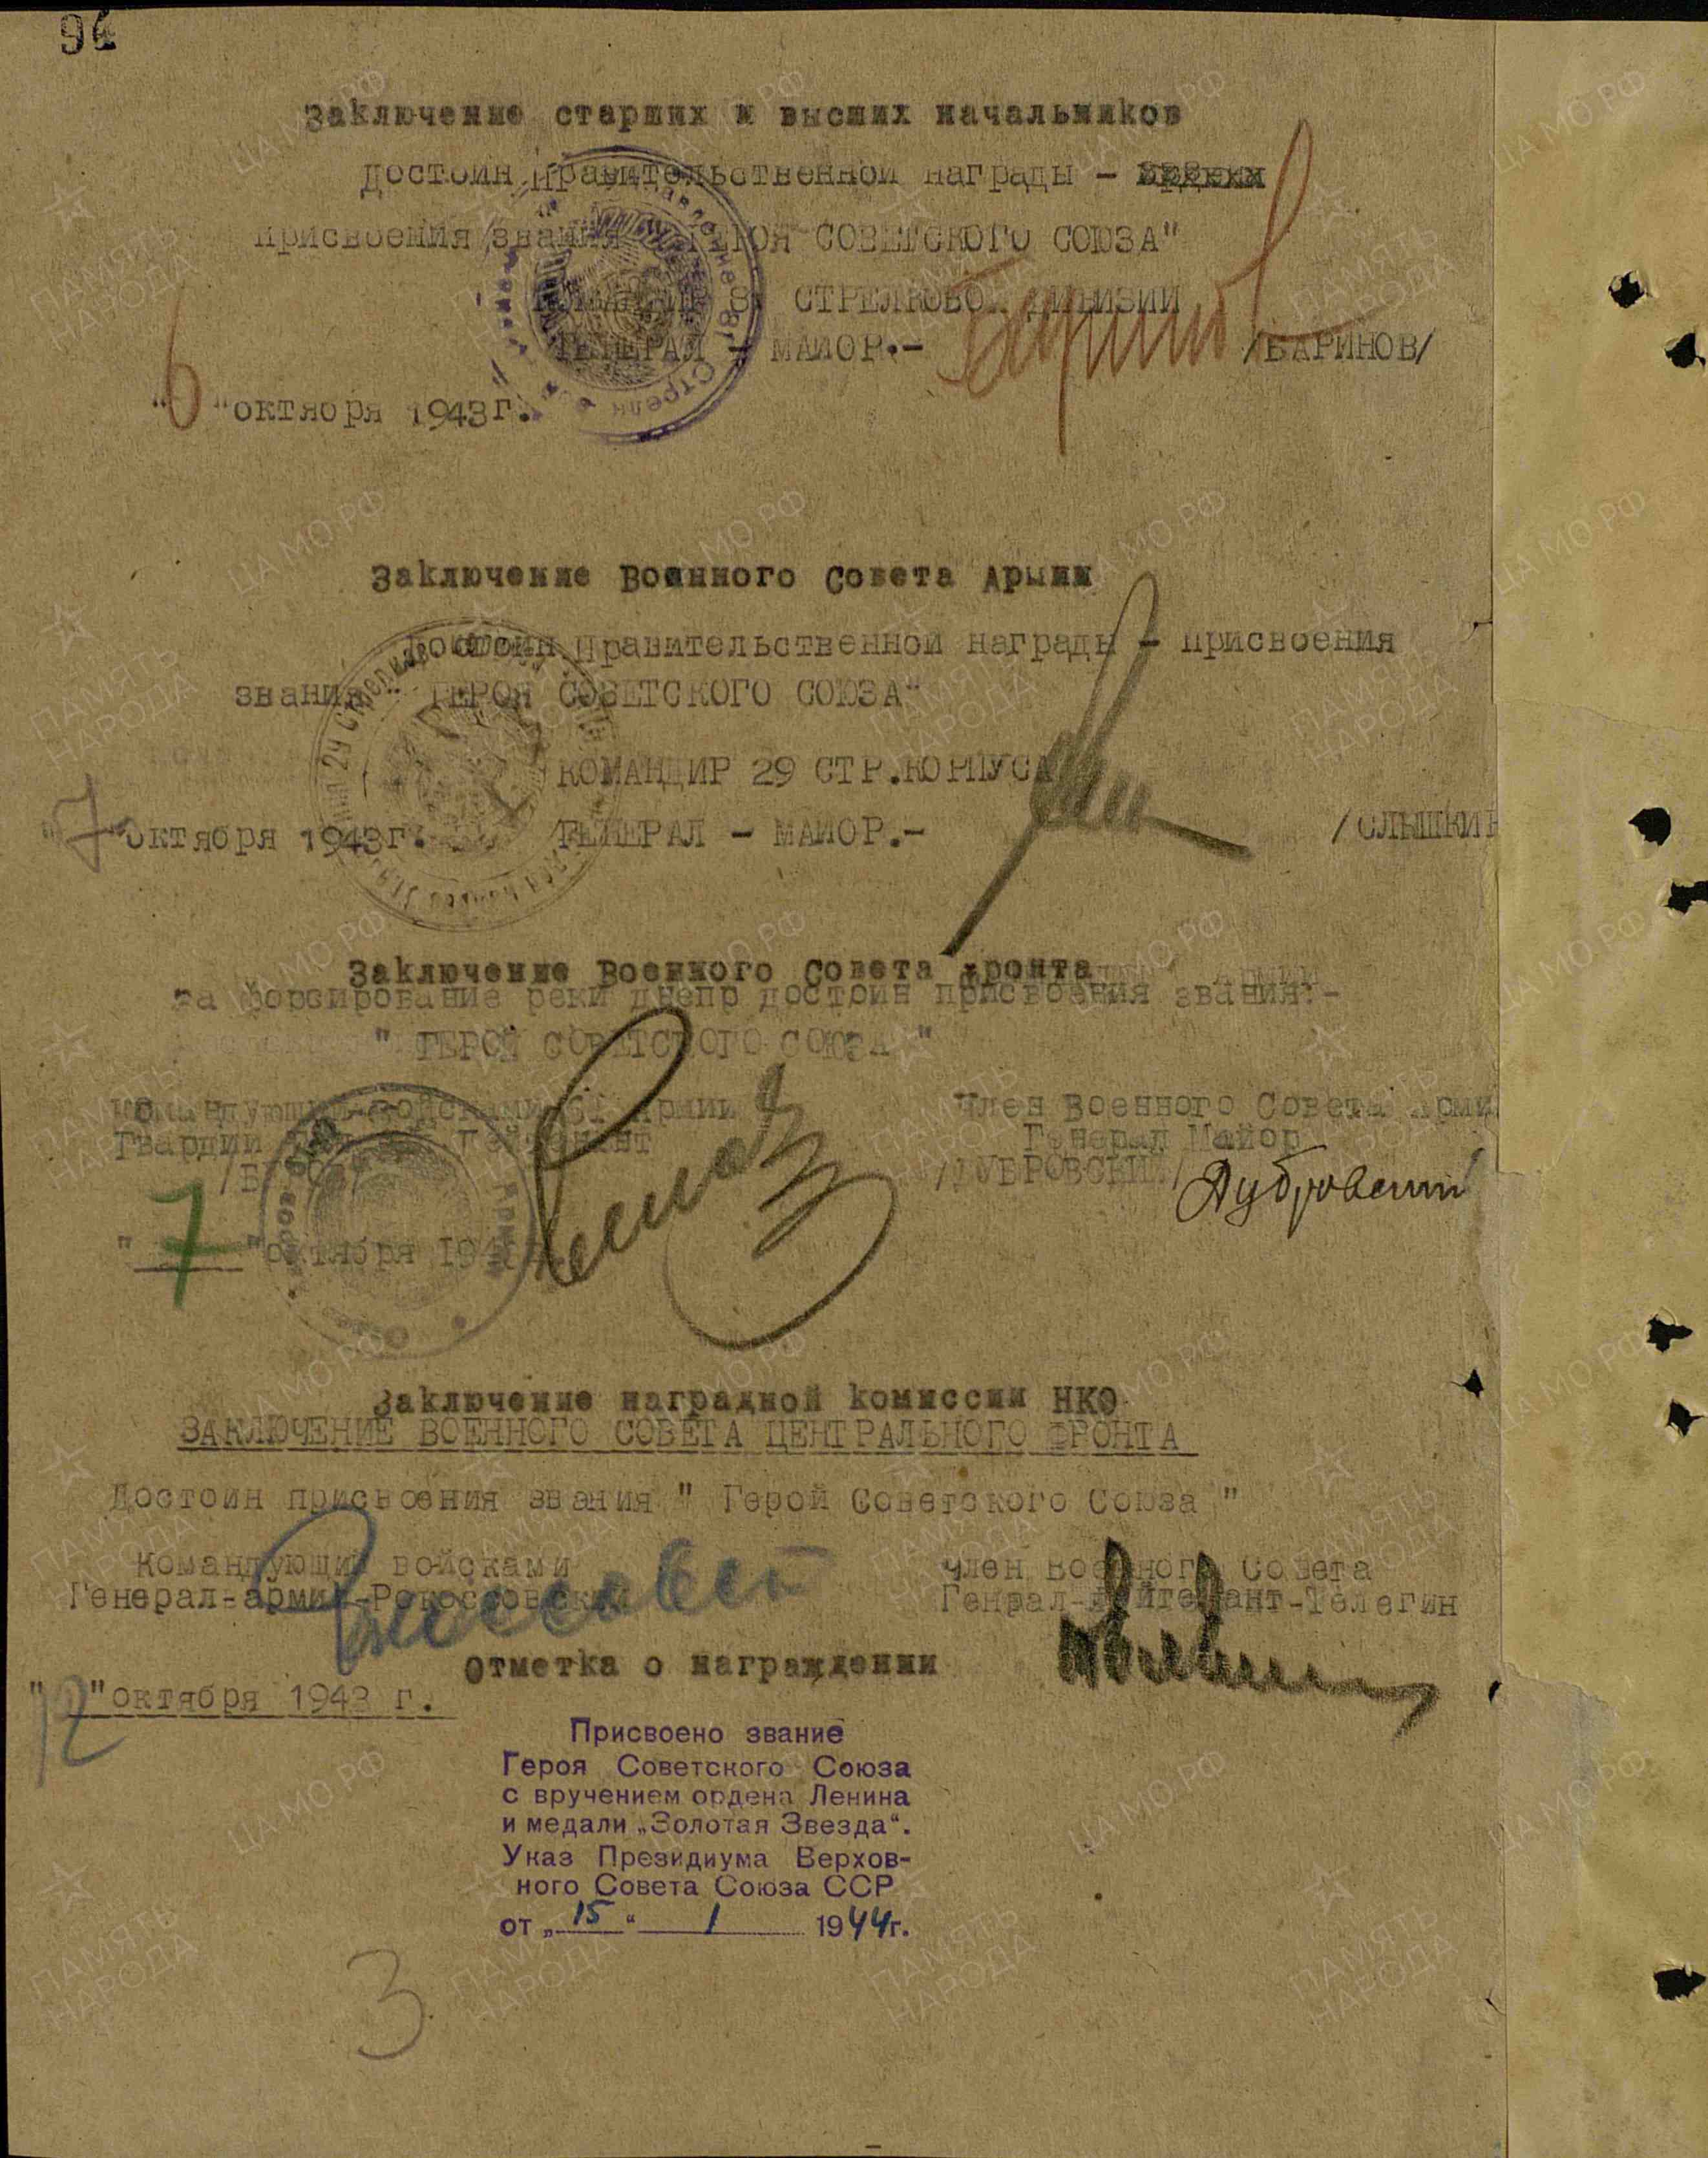 Заключение старших и высших начальников
Достоин Правительственной награды –
присвоения звания " ГЕРОЯ СОВЕТСКОГО СОЮЗА"
КОМАНДИР 81 СТРЕЛКОВОЙ ДИВИЗИИ
ГЕНЕРАЛ – МАЙОР.– /БАРИНОВ/
"6" октября 1943г.
Заключение Военного Совета Армии
Достоин Правительственной награды – присвоения
звания " ГЕРОЯ СОВЕТСКОГО СОЮЗА"
КОМАНДИР 29 СТР.КОРПУСА
"7" октября 1943г. ГЕНЕРАЛ – МАЙОР.– /СЛЫШКИН
Заключение Военного Совета фронта
за форсирование реки Днепр достоин присвоения звания:–
" ГЕРОЙ СОВЕТСКОГО СОЮЗА "
Командующий войсками 61 Армии Член Военного Совета Арми
Гвардии Лейтенант Генерал Майор
/ДУБРОВСКИЙ/ Дубровский
"7" октября 194
Заключение наградной комиссии НКО
ЗАКЛЮЧЕНИЕ ВОЕННОГО СОВЕТА ЦЕНТРАЛЬНОГО ФРОНТА
Достоин присвоения звания " Герой Советского Союза "
Командующий войсками Член Военного Совета
Генерал-армии-Рокоссовский Генрал-Лейтенант-Телегин
Отметка о награждении
"12" октября 1943 г.
Присвоено звание
Героя Советского Союза
с вручением ордена Ленина
и медали „Золотая Звезда".
Указ Президиума Верхов-
ного Совета Союза ССР
от „15" 1 1944г.
3